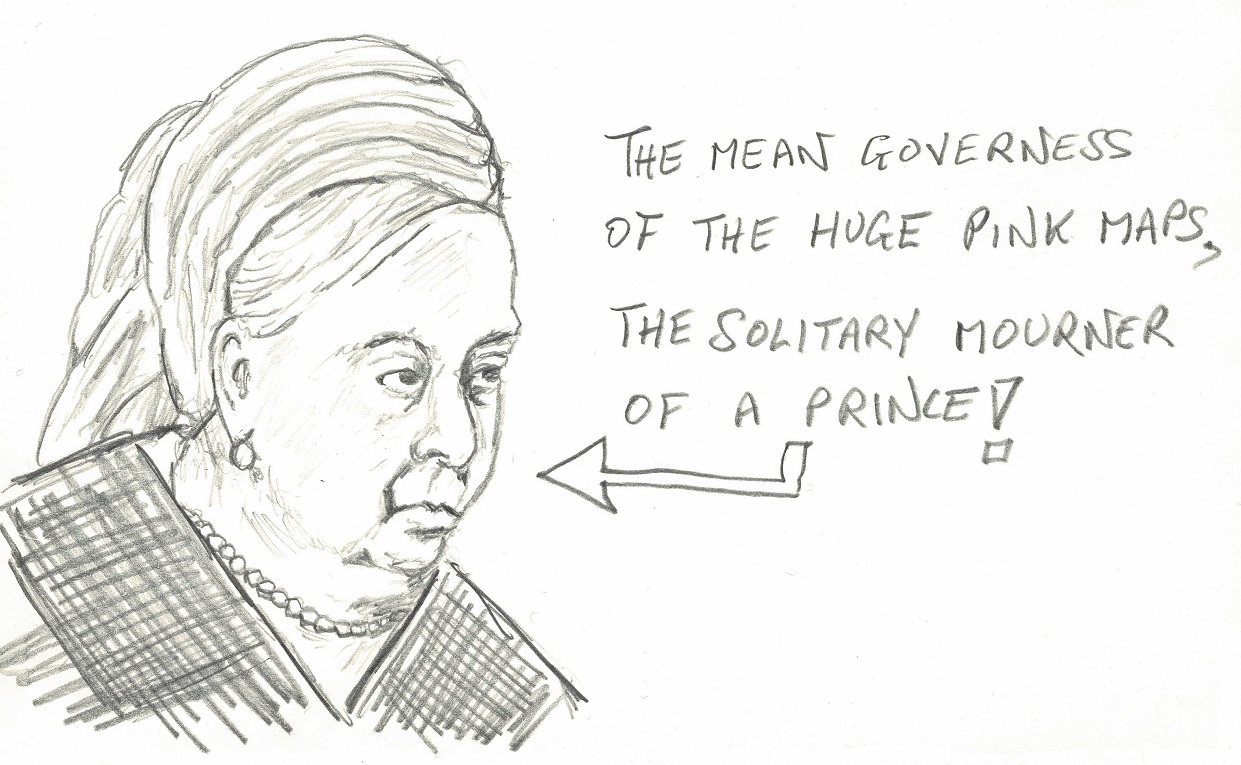 THE MEAN GOVERNESS
OF THE HUGE PINK MAPS,
THE SOLITARY MOURNER
OF A PRINCE!